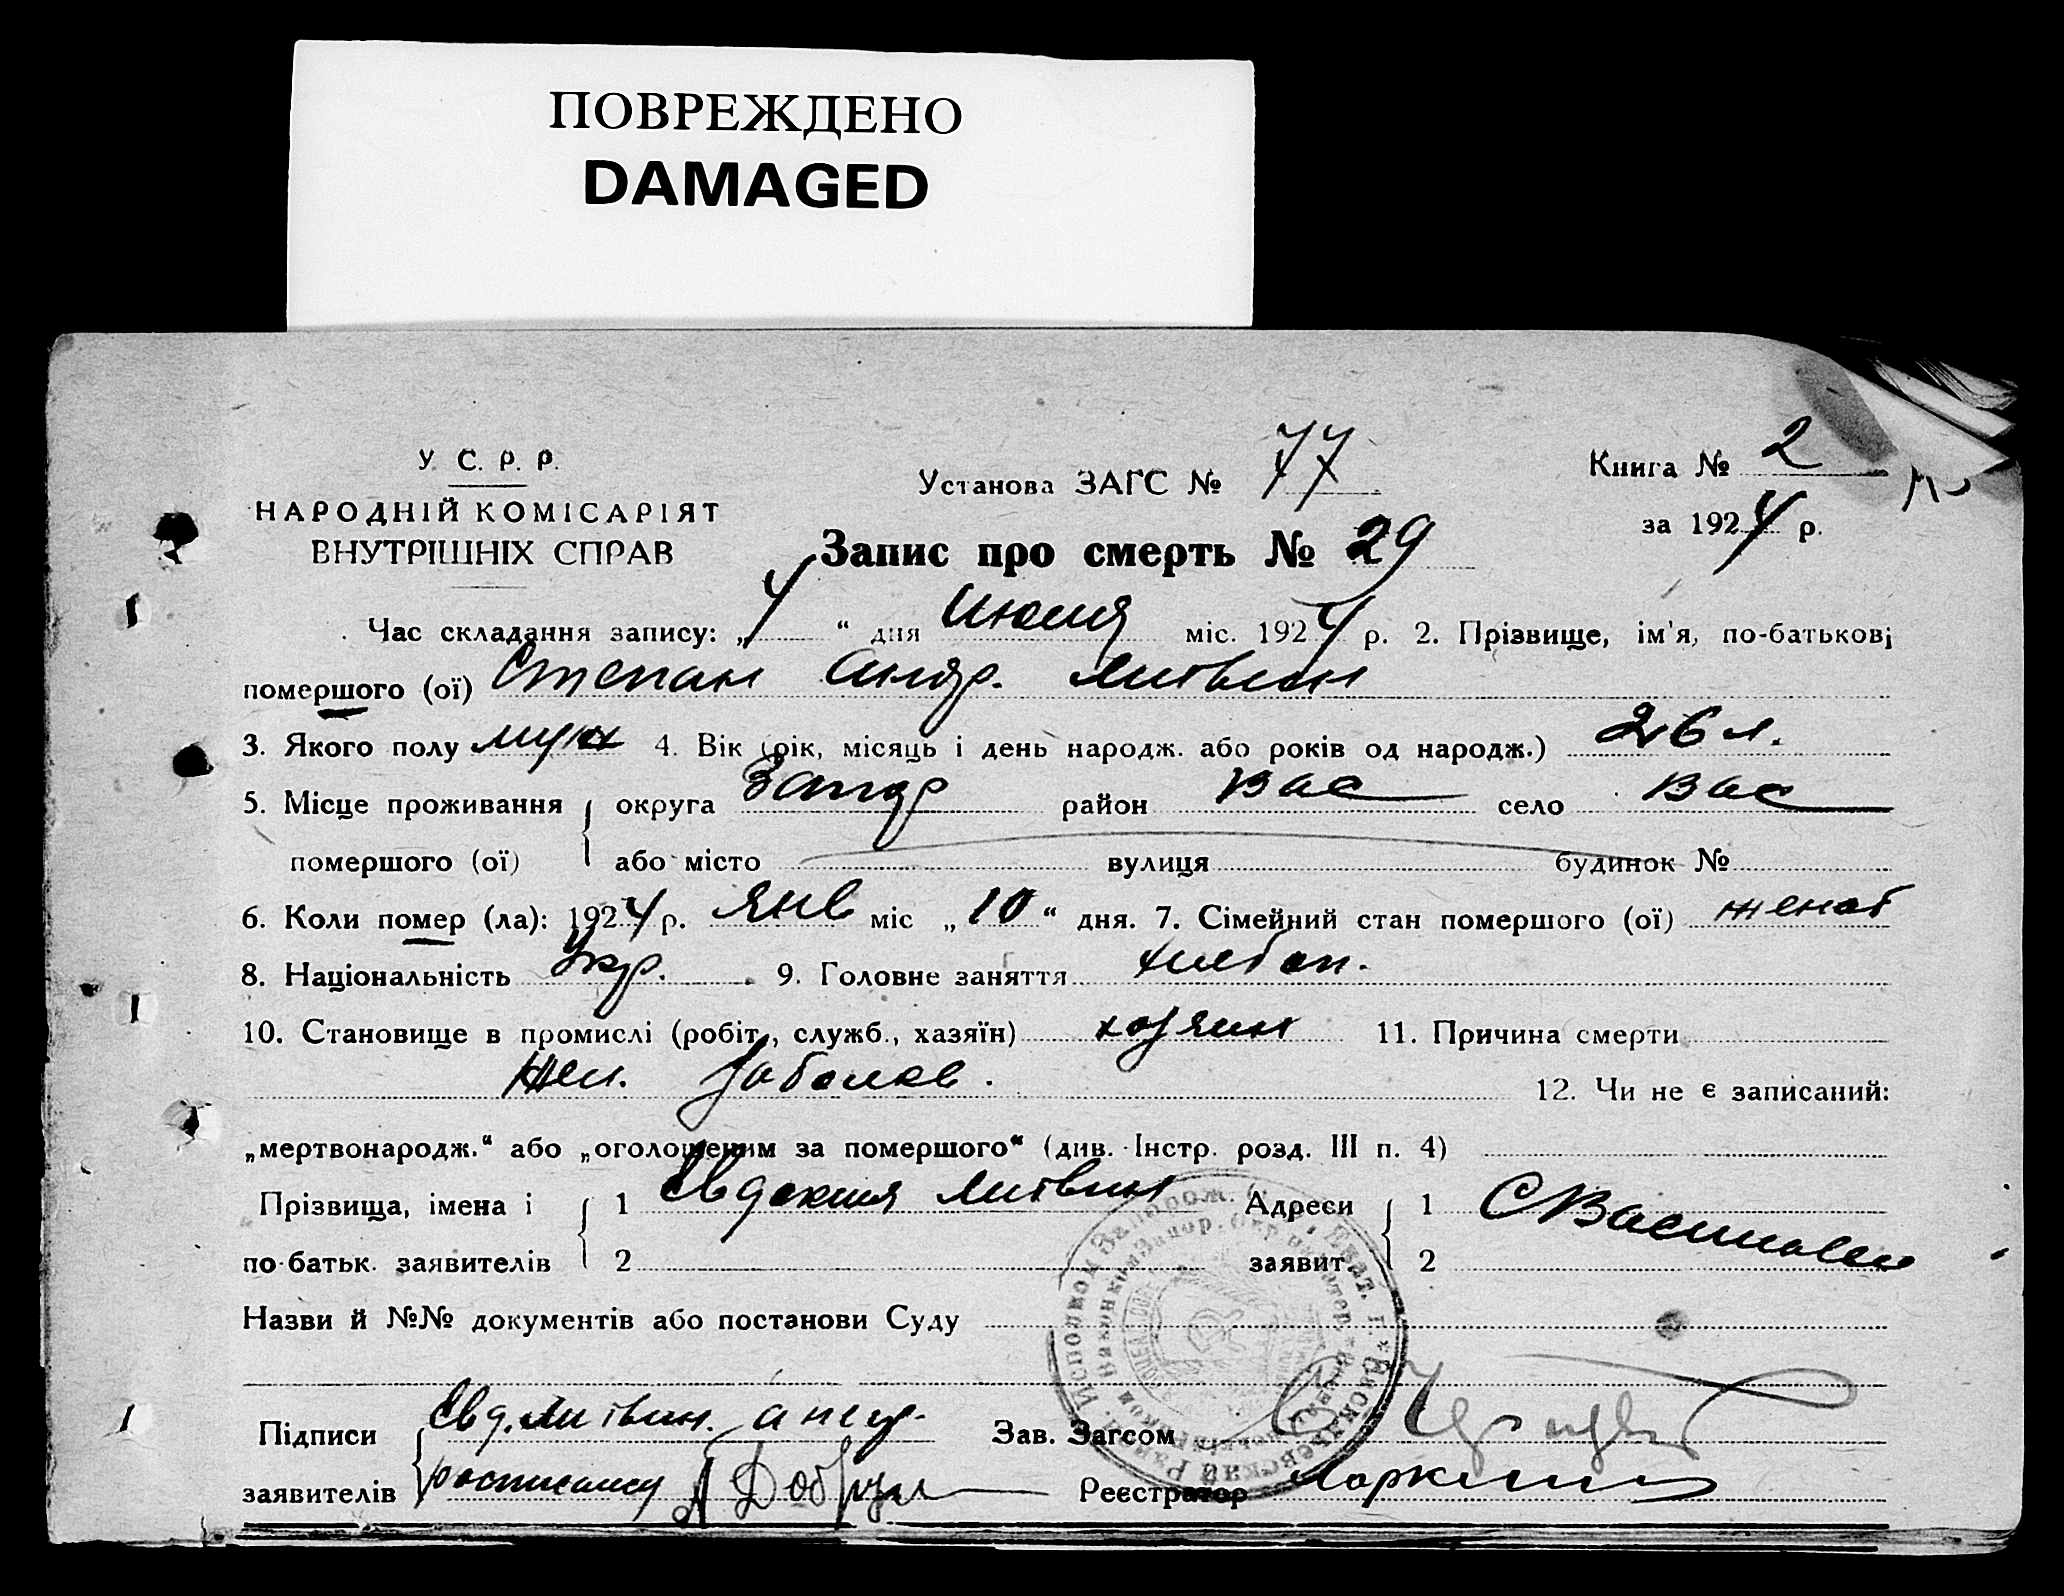 ПОВРЕЖДЕНО
DAMAGED
У. С. Р. Р.
НАРОДНІЙ КОМІСАРІЯТ
ВНУТРІШНІХ СПРАВ
Установа ЗАГС № 77
Книга № 2
за 1924 р.
Запис про смерть № 29
Час складання запису: „4“ дня Июля міс. 1924 р. 2. Прізвище, ім'я, по-батькові
помершого (ої) Степан Андр. Литвин
3. Якого полу муж 4. Вік (рік, місяць і день народж. або років од народж.) 26 л.
5. Місце проживання округа Запор район Вас село Вас
помершого (ої) або місто вулиця будинок №
6. Коли помер (ла): 1924 р. янв міс „10“ дня. 7. Сімейний стан помершого (ої) женат
8. Національність Укр. 9. Головне заняття хлебоп.
10. Становище в промислі (робіт., служб., хазяїн) хозяин 11. Причина смерти
Жел. заболев. 12. Чи не є записаний:
„мертвонародж.“ або „оголошеним за помершого“ (див. Інстр. розд. III п. 4)
Прізвища, імена і 1 Евдокия Литвин Адреси 1 С Васильев
по-батьк. заявителів 2 заявит. 2
Назви й №№ документів або постанови Суду
Підписи Евд. Литвин. а негр. Зав. Загсом
заявителів росписался Реєстратор